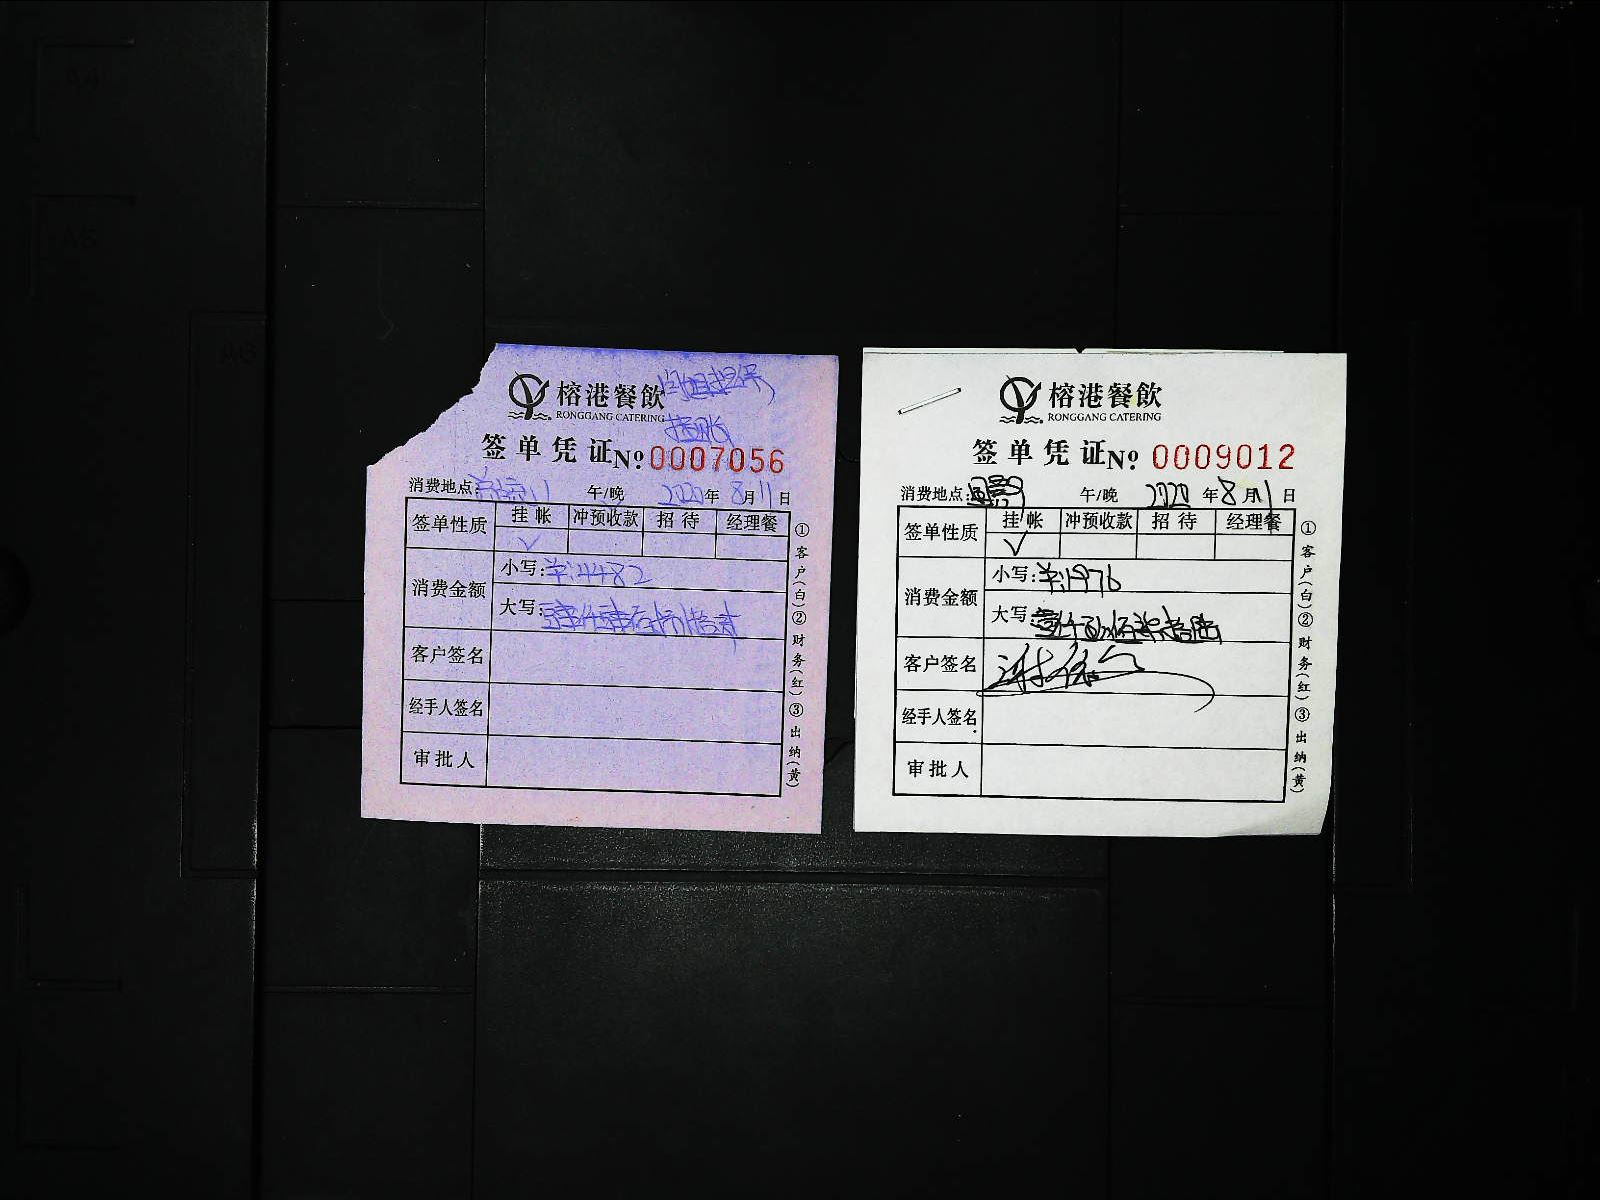 榕港餐飲
RONGGANG CATERING
挂账
签单凭证 No 0007056
消费地点: 午/晚 2020年8月11日
签单性质 挂帐 冲预收款 招待 经理餐
√
消费金额 小写:
大写:
客户签名
经手人签名
审批人
①客户(白)②财务(红)③出纳(黄)
榕港餐飲
RONGGANG CATERING
签单凭证 No 0009012
消费地点: 午/晚 2020年8月11日
签单性质 挂帐 冲预收款 招待 经理餐
√
消费金额 小写: 1976
大写: 壹仟玖佰柒拾陆
客户签名
经手人签名
审批人
①客户(白)②财务(红)③出纳(黄)